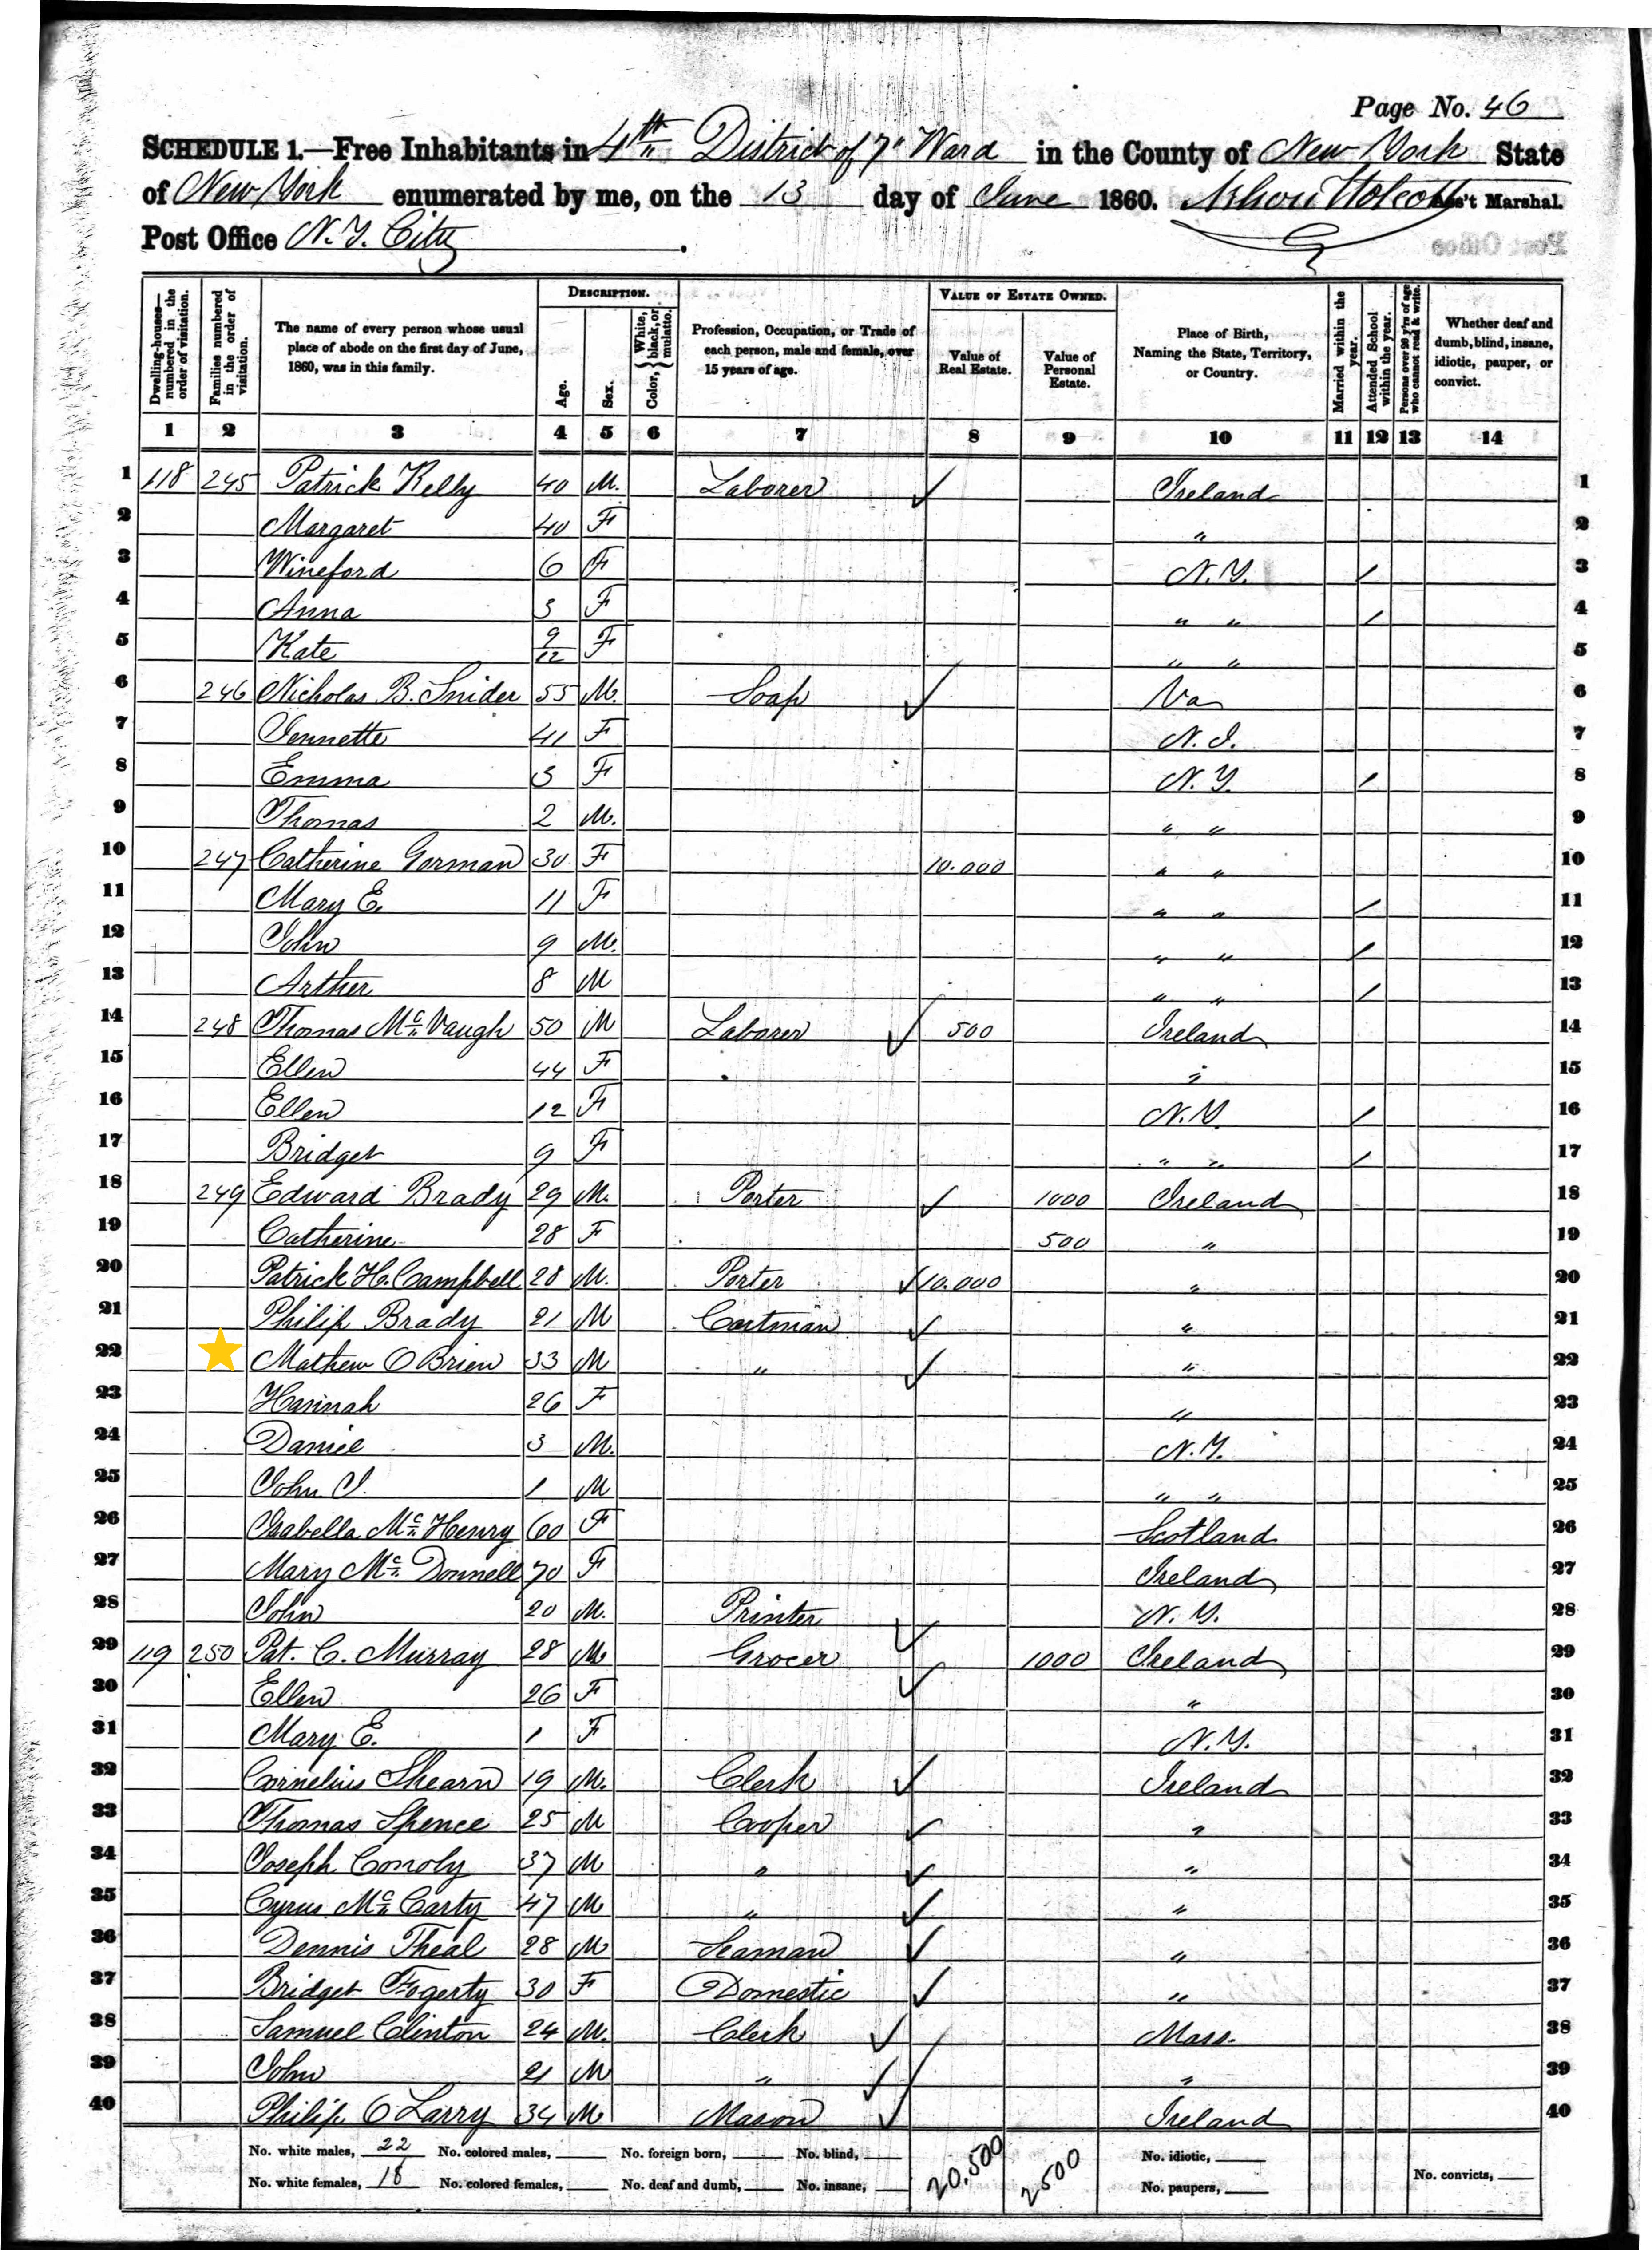 Page No. 46
SCHEDULE 1.—Free Inhabitants in 4th District of 7" Ward in the County of New York State
of New York enumerated by me, on the 13 day of June 1860. Ass't Marshal.
Post Office N.Y. City.
Dwelling-houses—numbered in the order of visitation. Families numbered in the order of visitation. The name of every person whose usual place of abode on the first day of June, 1860, was in this family. DESCRIPTION. Age. Sex. Color, {White, black, or mulatto. Profession, Occupation, or Trade of each person, male and female, over 15 years of age. VALUE OF ESTATE OWNED. Value of Real Estate. Value of Personal Estate. Place of Birth, Naming the State, Territory, or Country. Married within the year. Attended School within the year. Persons over 20 y'rs of age who cannot read & write. Whether deaf and dumb, blind, insane, idiotic, pauper, or convict.
1 2 3 4 5 6 7 8 9 10 11 12 13 14
1 118 245 Patrick Kelly 40 M. Laborer ✓ Ireland 1
2 Margaret 40 F " 2
3 Wineford 6 F N.Y. / 3
4 Anna 5 F " " / 4
5 Kate 9/12 F " " 5
6 246 Nicholas B. Snider 55 M. Soap ✓ Va 6
7 Jennette 41 F N.J. 7
8 Emma 5 F N.Y. / 8
9 Thomas 2 M. " " 9
10 247 Catherine Gorman 30 F 10.000 " " 10
11 Mary E. 11 F " " / 11
12 John 9 M. " " / 12
13 Arther 8 M " " / 13
14 248 Thomas Mc Vaugh 50 M Laborer ✓ 500 Ireland 14
15 Ellen 44 F " 15
16 Ellen 12 F N.Y. / 16
17 Bridget 9 F " " / 17
18 249 Edward Brady 29 M. Porter ✓ 1000 Ireland 18
19 Catherine 28 F 500 " 19
20 Patrick H. Campbell 28 M. Porter ✓ 10.000 " 20
21 Philip Brady 21 M Cartman ✓ " 21
22 Mathew O Brien 33 M " ✓ " 22
23 Hannah 26 F " 23
24 Daniel 3 M. N.Y. 24
25 John J. 1 M " " 25
26 Isabella Mc Henry 60 F Scotland 26
27 Mary Mc Donnell 70 F Ireland 27
28 John 20 M. Printer ✓ N.Y. 28
29 119 250 Pat. C. Murray 28 M Grocer ✓ 1000 Ireland 29
30 Ellen 26 F " 30
31 Mary E. 1 F N.Y. 31
32 Cornelius Shearn 19 M. Clerk ✓ Ireland 32
33 Thomas Spence 25 M Cooper ✓ " 33
34 Joseph Conoly 37 M " ✓ " 34
35 Cyrus Mc Carty 47 M " ✓ " 35
36 Dennis Theal 28 M Seaman ✓ " 36
37 Bridget Fogerty 30 F Domestic ✓ " 37
38 Samuel Clinton 24 M. Clerk ✓ Mass. 38
39 John 21 M " ✓ " 39
40 Philip O Larry 34 M Mason ✓ Ireland 40
No. white males, 22 No. colored males, No. foreign born, No. blind, 20,500 2500 No. idiotic,
No. white females, 18 No. colored females, No. deaf and dumb, No. insane, No. paupers, No. convicts,